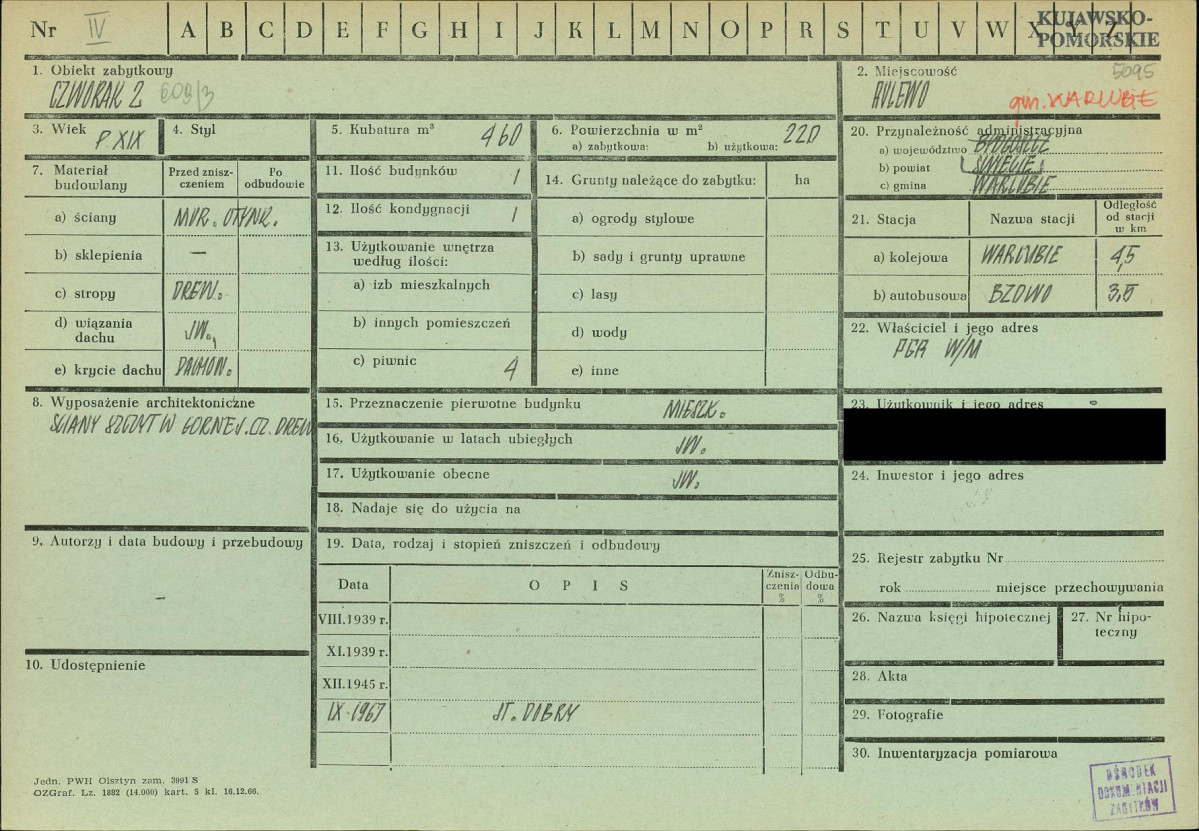 Nr IV A B C D E F G H I J K L M N O P R S T U V W X Y Z
KUJAWSKO-
POMORSKIE
1. Obiekt zabytkowy
CZWORAK 2 603/3
2. Miejscowość 5095
RULEWO gm. WARLUBIE
3. Wiek P XIX
4. Styl
5. Kubatura m³ 460
6. Powierzchnia w m²
a) zabytkowa: b) użytkowa: 220
20. Przynależność administracyjna
a) województwo BYDGOSZCZ
b) powiat ŚWIECIE
c) gmina WARLUBIE
7. Materiał budowlany
Przed zniszczeniem
Po odbudowie
a) ściany MUR. OTYNK.
b) sklepienia —
c) stropy DREW.
d) wiązania dachu JW.
e) krycie dachu DACHÓW.
11. Ilość budynków 1
12. Ilość kondygnacji 1
13. Użytkowanie wnętrza
według ilości:
a) izb mieszkalnych
b) innych pomieszczeń
c) piwnic 4
14. Grunty należące do zabytku: ha
a) ogrody stylowe
b) sady i grunty uprawne
c) lasy
d) wody
e) inne
21. Stacja
Nazwa stacji
Odległość
od stacji
w km
a) kolejowa WARLUBIE 4,5
b) autobusowa BZOWO 3,5
22. Właściciel i jego adres
PGR W/M
8. Wyposażenie architektoniczne
ŚCIANY SZCZYT W GÓRNEJ CZ. DREW
15. Przeznaczenie pierwotne budynku MIESZK.
16. Użytkowanie w latach ubiegłych JW.
17. Użytkowanie obecne JW.
18. Nadaje się do użycia na
23. Użytkownik i jego adres
24. Inwestor i jego adres
9. Autorzy i data budowy i przebudowy
—
19. Data, rodzaj i stopień zniszczeń i odbudowy
Data O P I S
Znisz-
czenia
%
Odbu-
dowa
%
VIII.1939 r.
XI.1939 r.
XII.1945 r.
IX-1967 ST. DOBRY
25. Rejestr zabytku Nr
rok miejsce przechowywania
26. Nazwa księgi hipotecznej
27. Nr hipo-
teczny
10. Udostępnienie
28. Akta
29. Fotografie
30. Inwentaryzacja pomiarowa
Jedn. PWH Olsztyn zam. 3991 S
OZGraf. Lz. 1882 (14.000) kart. 5 kl. 16.12.66.
OŚRODEK
DOKUMENTACJI
ZABYTKÓW